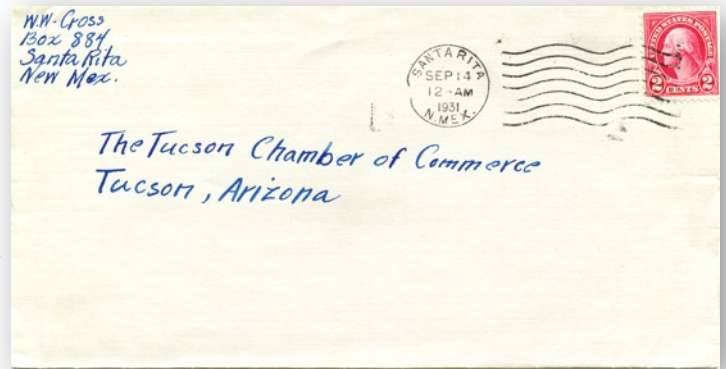 W.W. Cross
Box 884
Santa Rita
New Mex.
SANTA RITA
SEP 14
12-AM
1931
N. MEX.
UNITED STATES POSTAGE
2 CENTS 2
The Tucson Chamber of Commerce
Tucson, Arizona